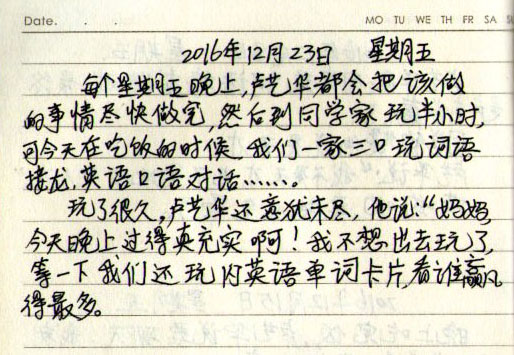 Date. . .
MO TU WE TH FR SA SU
2016年12月23日 星期五
每个星期五晚上,卢艺华都会把该做
的事情尽快做完,然后到同学家玩半小时,
可今天在吃饭的时候,我们一家三口玩词语
接龙,英语口语对话……。
玩了很久,卢艺华还意犹未尽,他说:“妈妈,
今天晚上过得真充实啊!我不想出去玩了,
等一下我们还玩闪英语单词卡片,看谁赢
得最多。